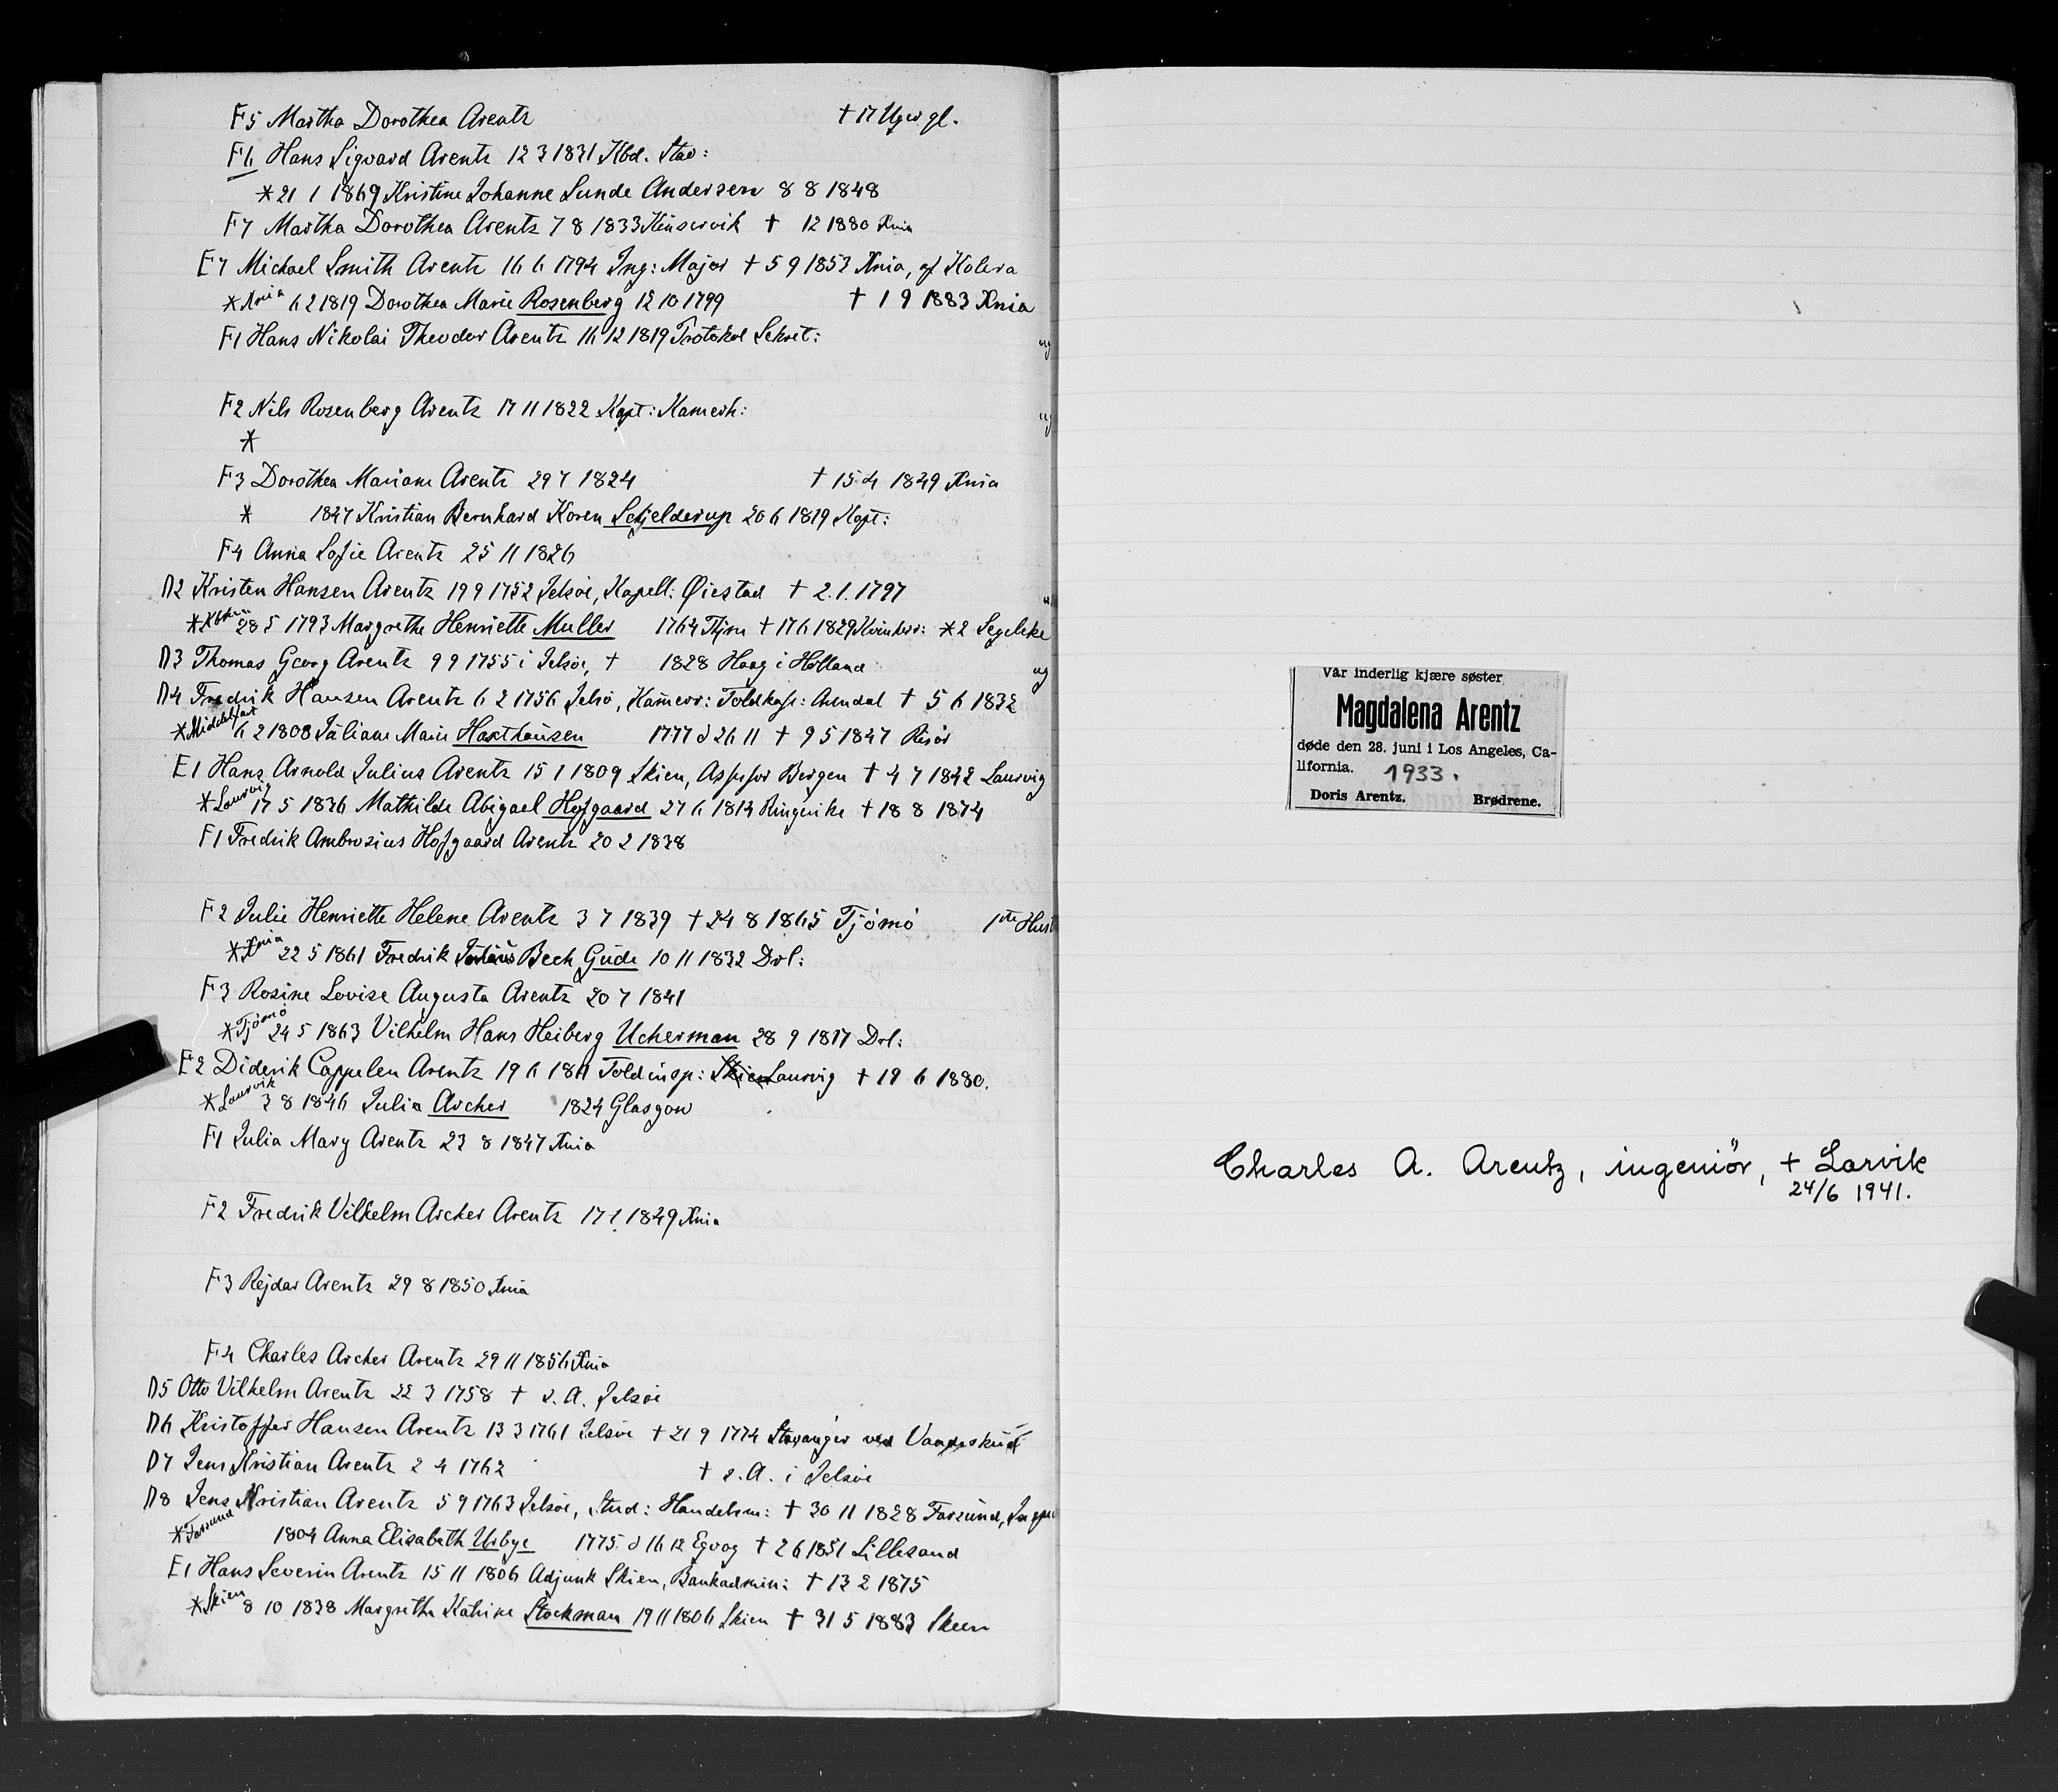 F5 Martha Dorothea Arentz † 17 Uger gl.
F6 Hans Sigvard Arentz 12 3 1831 Kbd. Stav:
* 21 1 1869 Kristine Johanne Lunde Andersen 8 8 1848
F7 Martha Dorothea Arentz 7 8 1833 Kinservik † 12 1880 Knia
E7 Michael Smith Arentz 16 6 1794 Ing: Major † 5 9 1853 Knia, af Kolera
* Knia 6 2 1819 Dorothea Marie Rosenberg 12 10 1799 † 1 9 1883 Knia
F1 Hans Nikolai Theodor Arentz 16 12 1819 Protokol Sekret:
F2 Nils Rosenberg Arentz 17 11 1822 Kapt: Kamerh:
*
F3 Dorothea Mariane Arentz 29 7 1824 † 15 4 1849 Knia
* 1847 Kristian Bernhard Koren Schjelderup 20 6 1819 Kapt:
F4 Anna Sofie Arentz 25 11 1826
D2 Kristen Hansen Arentz 19 9 1752 Jelsöe, Kapell: Øiestad † 2.1.1797
* 28 5 1793 Margrethe Henriette Muller 1764 † 17 6 1829 *2 Segelcke
D3 Thomas Georg Arentz 9 9 1755 i Jelsöe, † 1828 Haag i Holland
D4 Fredrik Hansen Arentz 6 2 1756 Jelsö, Kamerr: Toldkass: Arendal † 5 6 1832
* Middelfart 6 2 1808 Juliane Marie Haxthausen 1777 d 26 11 † 9 5 1847 Risör
E1 Hans Arnold Julius Arentz 15 1 1809 Skien, Assessor Bergen † 4 7 1842 Laurvig
* Laurvig 17 5 1836 Mathilde Abigael Hofgaard 27 6 1814 Ringerike † 18 8 1874
F1 Fredrik Ambrosius Hofgaard Arentz 20 2 1838
F2 Julie Henriette Helene Arentz 3 7 1839 † 24 8 1865 Tjömö 1ste Hust
* Knia 22 5 1861 Fredrik Julius Bech Gude 10 11 1832 Drl:
F3 Rosine Lovise Augusta Arentz 20 7 1841
* Tjömö 24 5 1863 Vilhelm Hans Heiberg Ucherman 28 9 1817 Drl:
E2 Diderik Cappelen Arentz 19 6 1811 Toldinsp: Skien Laurvig † 19 6 1880.
* Laurvik 3 8 1846 Julia Archer 1824 Glasgow
F1 Julia Mary Arentz 23 8 1847 Knia
F2 Fredrik Vilhelm Archer Arentz 17 1 1849 Knia
F3 Rejdar Arentz 29 8 1850 Knia
F4 Charles Archer Arentz 29 11 1856 Knia
D5 Otto Vilhelm Arentz 22 3 1758 † s. A. Jelsöe
D6 Kristoffer Hansen Arentz 13 3 1761 Jelsöe † 21 9 1774 Stavanger ved Vaadeskud
D7 Jens Kristian Arentz 2 4 1762 † s. A. i Jelsöe
D8 Jens Kristian Arentz 5 9 1763 Jelsöe, Stud: Handelsm: † 30 11 1828 Farsund,
* Farsund 1804 Anna Elisabeth Urbye 1775 d 16 12 Egvag † 2 6 1851 Lillesand
E1 Hans Severin Arentz 15 11 1806 Adjunk Skien, Bankadmin: † 13 2 1875
* Skien 8 10 1838 Margrethe Katrine Stockman 19 11 1806 Skien † 31 5 1883 Skien
Vår inderlig kjære søster
Magdalena Arentz
døde den 28. juni i Los Angeles, Ca-
lifornia. 1933.
Doris Arentz. Brødrene.
Charles A. Arentz, ingeniör, + Larvik
24/6 1941.